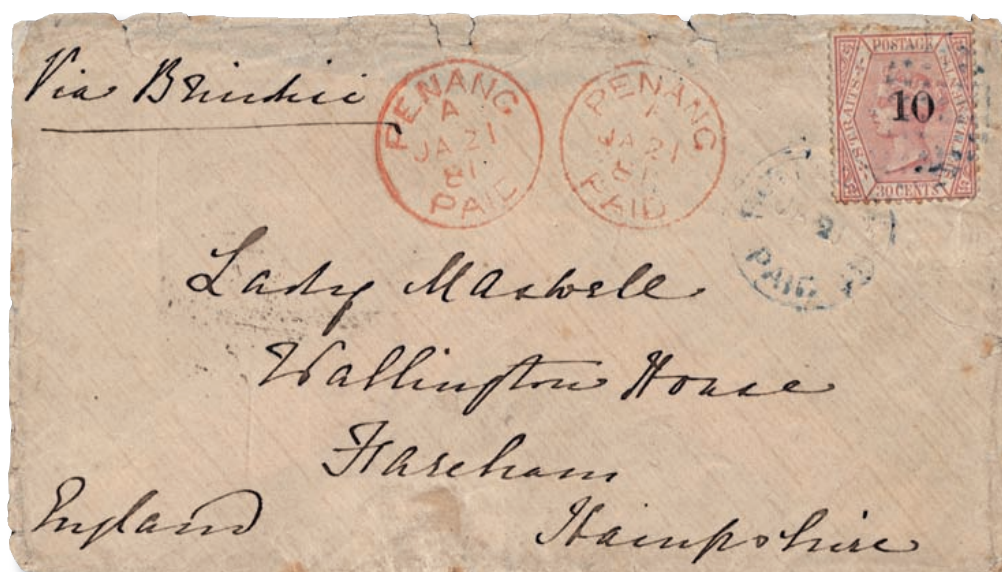 Via Brindisi
PENANG
A
JA 21
81
PAID
PENANG
A
JA 21
81
PAID
POSTAGE
STRAITS SETTLEMENTS
10
30 CENTS
PAID
Lady Maxwell
Wallington House
Fareham
England
Hampshire